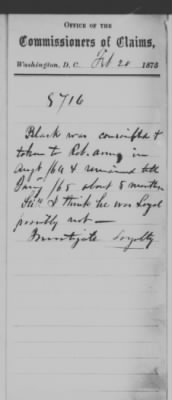 OFFICE OF THE
Commissioners of Claims,
Washington, D.C. Feb 20 1875
8716
Black was conscripted &
taken to Reb. army in
Augt /64 & remained till
Jany /65 about 5 months
I think he was Loyal
possibly not —
Investigate Loyalty